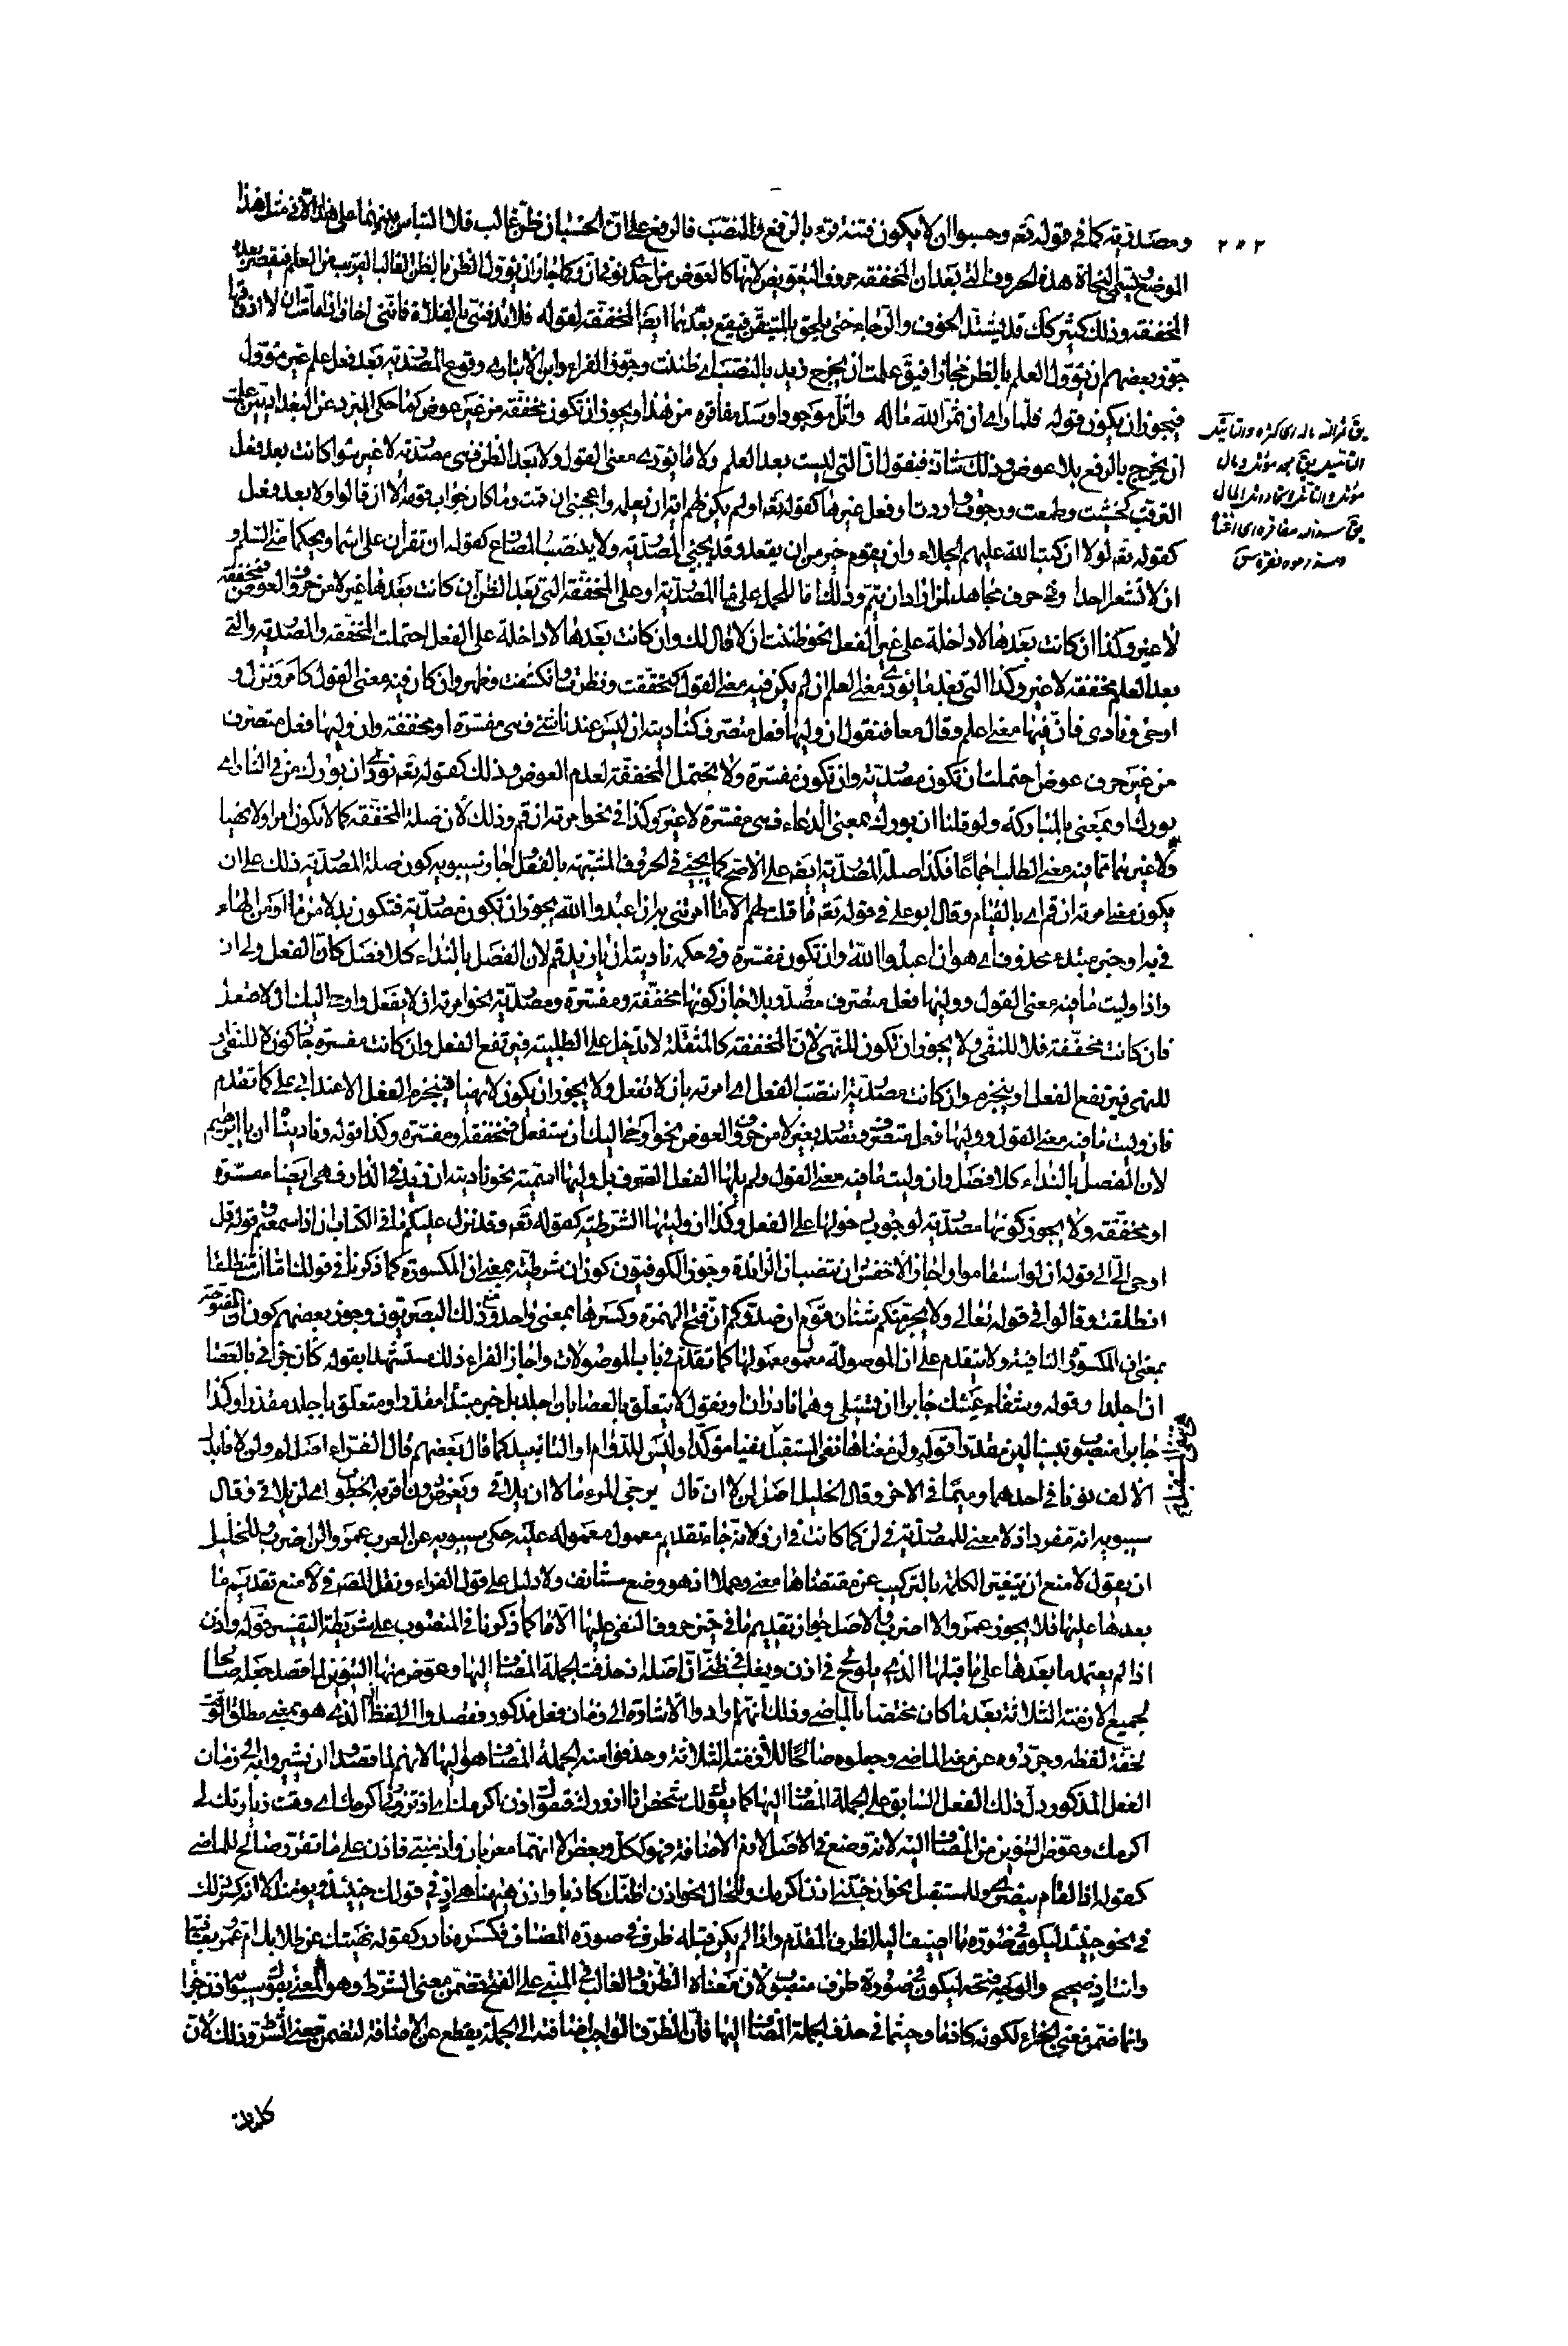 ومصدرية كما في قوله تعم وحسبوا ان لا يكون فتنة قرء بالرفع والنصب فالرفع على ان الحسبان ظن غالب فلا التباس بينهما على هذا الا في مثل هذا
الموضع يسمي النحاة هذه الحروف التي بعد ان المخففة حروف التعويض لانها كالعوض من احدى نوني ان وكما جاز ان يؤول الظن بالظن الغالب القريب من العلم فيقع بعده
المخففة وذلك كثير كك قد يشتد الخوف والرجاء حتى يلحق بالمتيقن فيقع بعدهما ايضا المخففة لقوله فلا تدفنني بالفلاة فانني اخاف اذا ما مت ان لا اذوقها
جوز بعضهم ان يؤول العلم بالظن مجازا فيق علمت ان يخرج زيد بالنصب اي ظننت وجوز الفراء وابن الانباري وقوع المصدرية بعد فعل علم غير مؤول
فيجوز ان يكون قوله فلما راى ان ثمر الله ماله واثل موجودا وسد مفاقره من هذا ويجوز ان تكون مخففة من غير عوض كما حكى المبرد عن البغداديين علمت
ان يخرج بالرفع بلا عوض وذلك شاذ فنقول ان التي ليست بعد العلم ولا ما يؤدي معنى القول ولا بعد الظن فهي مصدرية لا غير سواء كانت بعد فعل
الترقب كخشيت وطمعت ورجوت واردت او فعل غيرها كقوله تعم او لم يكن لهم اية ان يعلمه واعجبني ان قمت وما كان جواب قومه الا ان قالوا ولا بعد فعل
كقوله تعم لولا ان كتب الله عليهم الجلاء وان يقوم خير من ان يقعد وقد يجيئ المصدرية ولا ينصب المضارع كقوله ان تقرأن على اسماء ويحكما مني السلم و
ان لا تشعرا احدا وفي حرف مجاهد لمن اراد ان يتم وذلك اما للحمل على ما المصدرية او على المخففة التي بعد الظن ان كانت بعدها غير لا من حروف العوض فمخففة
لا غير وكذا ان كانت بعدها لا داخلة على غير الفعل نحو ظننت ان لا قال لك وان كانت بعدها لا داخلة على الفعل احتملت المخففة والمصدرية والتي
بعد العلم مخففة لا غير وكذا التي بعد ما يؤدي معنى العلم ان لم يكن فيه معنى القول كتحققت ونظرت وانكشفت وظهر وان كان فيه معنى القول كامر ونزل و
اوحى ونادى فان فيها معنى اعلم وقال معا فنقول ان وليها فعل متصرف كناديته ان ليس عندنا شئ فهي مفسرة او مخففة وان وليها فعل متصرف
من غير حرف عوض احتملت ان تكون مصدرية وان تكون مفسرة ولا يحتمل المخففة لعدم العوض وذلك كقوله تعم نودي ان بورك من في النار اي
بورك او بمعنى بالمباركة ولو قلنا ان بورك بمعنى الدعاء فهي مفسرة لا غير وكذا في نحو امرته ان قم وذلك لان صلة المخففة كما لا يكون امرا ولا نهيا
ولا غيرهما مما فيه معنى الطلب اجماعا فكذا صلة المصدرية ايضه على الاصح كما يجيئ في الحروف المشبهة بالفعل اجاز سيبويه كون صلة المصدرية ذلك على ان
يكون معنى امرته ان قم اي بالقيام وقال ابو علي في قوله تعم ما قلت لهم الا ما امرتني به ان اعبدوا الله يجوز ان تكون مصدرية فتكون بدلا من ما او من الهاء
في به او خبر مبتدء محذوف اي هو ان اعبدوا الله وان تكون مفسرة وفي حكمه ناديته ان يا زيد قم لان الفصل بالنداء كلا فصل كان الفعل ولى ان
واذا وليت ما فيه معنى القول ووليها فعل متصرف مصدر بلا جاز كونها مخففة ومفسرة ومصدرية نحو امرته ان لا يفعل واوحي اليك ان لا تفعل
فان كانت مخففة فلا للنفي ولا يجوز ان تكون للنهي لان المخففة كالمثقلة لا تدخل على الطلبية فيرتفع الفعل وان كانت مفسرة جاز كون لا للنفي و
للنهي فيرتفع الفعل او ينجزم وان كانت مصدرية انتصب الفعل اي امرته بان لا تفعل ولا يجوز ان يكون لا نهيا فينجزم الفعل الا عند ابي علي كما تقدم
فان وليت ما فيه معنى القول ووليها فعل متصرف مصدر بغير لا من حروف العوض نحو اوحي اليك ان ستفعل فمخففة او مفسرة وكذا قوله وناديناه ان يا ابرهيم
لان الفصل بالنداء كلا فصل وان وليت ما فيه معنى القول ولم يلها الفعل الصرف بل وليها اسمية نحو ناديته ان زيد في الدار فهي ايضا مفسرة
او مخففة ولا يجوز كونها مصدرية لوجوب دخولها على الفعل وكذا ان وليتها الشرطية كقوله تعم وقد نزل عليكم في الكتاب ان اذا سمعتم وقوله قل
اوحي الي الى قوله ان لو استقاموا واجاز الاخفش ان تنصب ان الزائدة وجوز الكوفيون كون ان شرطية بمعنى ان المكسورة كما ذكرنا في قولك اما انت منطلقا
انطلقت وقالوا في قوله تعالى ولا يجرمنكم شنان قوم ان صدوكم ان فتح الهمزة وكسرها بمعنى واحد ومنع ذلك البصريون وجوز بعضهم كون ان المفتوحة
بمعنى ان المكسورة النافية ولا يتقدم على ان الموصولة معمول معمولها كما تقدم في باب الموصولات واجاز الفراء ذلك مستشهدا بقوله كان جزائي بالعصا
ان اجلدا وقوله وشفاء غيك خابرا ان تسئلي وهما نادران او نقول لا يتعلق بالعصا بان اجلد بل خبر مبتدا مقدر او متعلق باجلد مقدرا وكذا
خابرا منصوب بتسئلين مقدرا قوله ولن معناها نفى المستقبل نفيا مؤكدا وليس للدوام او التابيد كما قال بعضهم قال الفراء اصل لم ولن لا فابدل
الالف نونا في احدهما وميما في الاخر وقال الخليل اصل لن لا ان قال يرجي المرء ما لا ان يلاقي وتعرض دون اقربه الخطوب اي لن يلاقي وقال
سيبويه انه مفرد اذ لا معنى للمصدرية في لن كما كانت في ان ولانه جاء تقديم معمول معموله عليه حكى سيبويه عن العرب عمروا لن اضرب للخليل
ان يقول لا منع ان يتغير الكلمة بالتركيب عن مقتضاها معنى وعملا اذ هو وضع مستانف ولا دليل على قول الفراء ونقل المصر في لا منع تقديم ما
بعدها عليها فلا يجوز عمروا لا اضرب والاصل جواز تقديم ما في حيز حروف النفى عليها الا ما كما ذكرنا في المنصوب على شريطة التفسير قوله واذن
اذا لم يعتمد ما بعدها على ما قبلها الذي يلوح في اذن ويغلب في ظني ان اصله اذ حذفت الجملة المضاف اليها وعوض منها التنوين لما قصد جعله صالحا
لجميع الازمنة الثلاثة بعد ما كان مختصا بالماضي وذلك انهم ارادوا الاشارة الى زمان فعل مذكور فقصدوا الى لفظ اذ الذي هو بمعنى مطلق الوقت
لخفة لفظه وجردوه عن معنى الماضي وجعلوه صالحا للازمنة الثلاثة وحذفوا منه الجملة المضاف هو اليها لانهم لما قصدوا ان يشيروا به الى زمان
الفعل المذكور دل ذلك الفعل السابق على الجملة المضاف اليها كما يقول لك شخص انا ازورك فتقول اذن اكرمك اي اذ تزورني اكرمك اي وقت زيارتك لي
اكرمك وعوض التنوين من المضاف اليه لانه وضع في الاصل لازم الاضافة فهو ككل وبعض الا انهما معربان واذ مبني فاذن على ما تقرر صالح للماضي
كقوله اذا لقام بنصري وللمستقبل نحو ان جئتني اذن اكرمك وللحال نحو اذن اظنك كاذبا واذن ههنا هي اذ في قولك حينئذ ويومئذ الا انه كسر ذلك
في نحو حينئذ ليكون في صورة ما اضيف اليه الظرف المقدم واذا لم يكن قبله ظرف في صورة المضاف فكسره نادر كقوله نهيتك عن طلابك ام عمرو بعاقبة
وانت اذ صحيح والوجه فتحه ليكون في صورة ظرف منصوب لان معناه الظرف والغالب في المبني على الفتح تضمن معنى الشرط وهو المعني بقول سيبويه اذن جزاء
وانما ضمن معنى الجزاء لكونه كاذما وحيثما في حذف الجملة المضاف اليها فان الظرف الواجب اضافته الى الجملة يقطع عن الاضافة لتضمن معنى الشرط وذلك لان
كلمات
يق ثمر الله ماله اى كثره والتاثيل
التاصيل يق مجد مؤثل ومال
مؤثل والتاثل اتخاذ اثل المال
يق سد الله مفاقره اى اغناه
وسد وجوه فقره ص